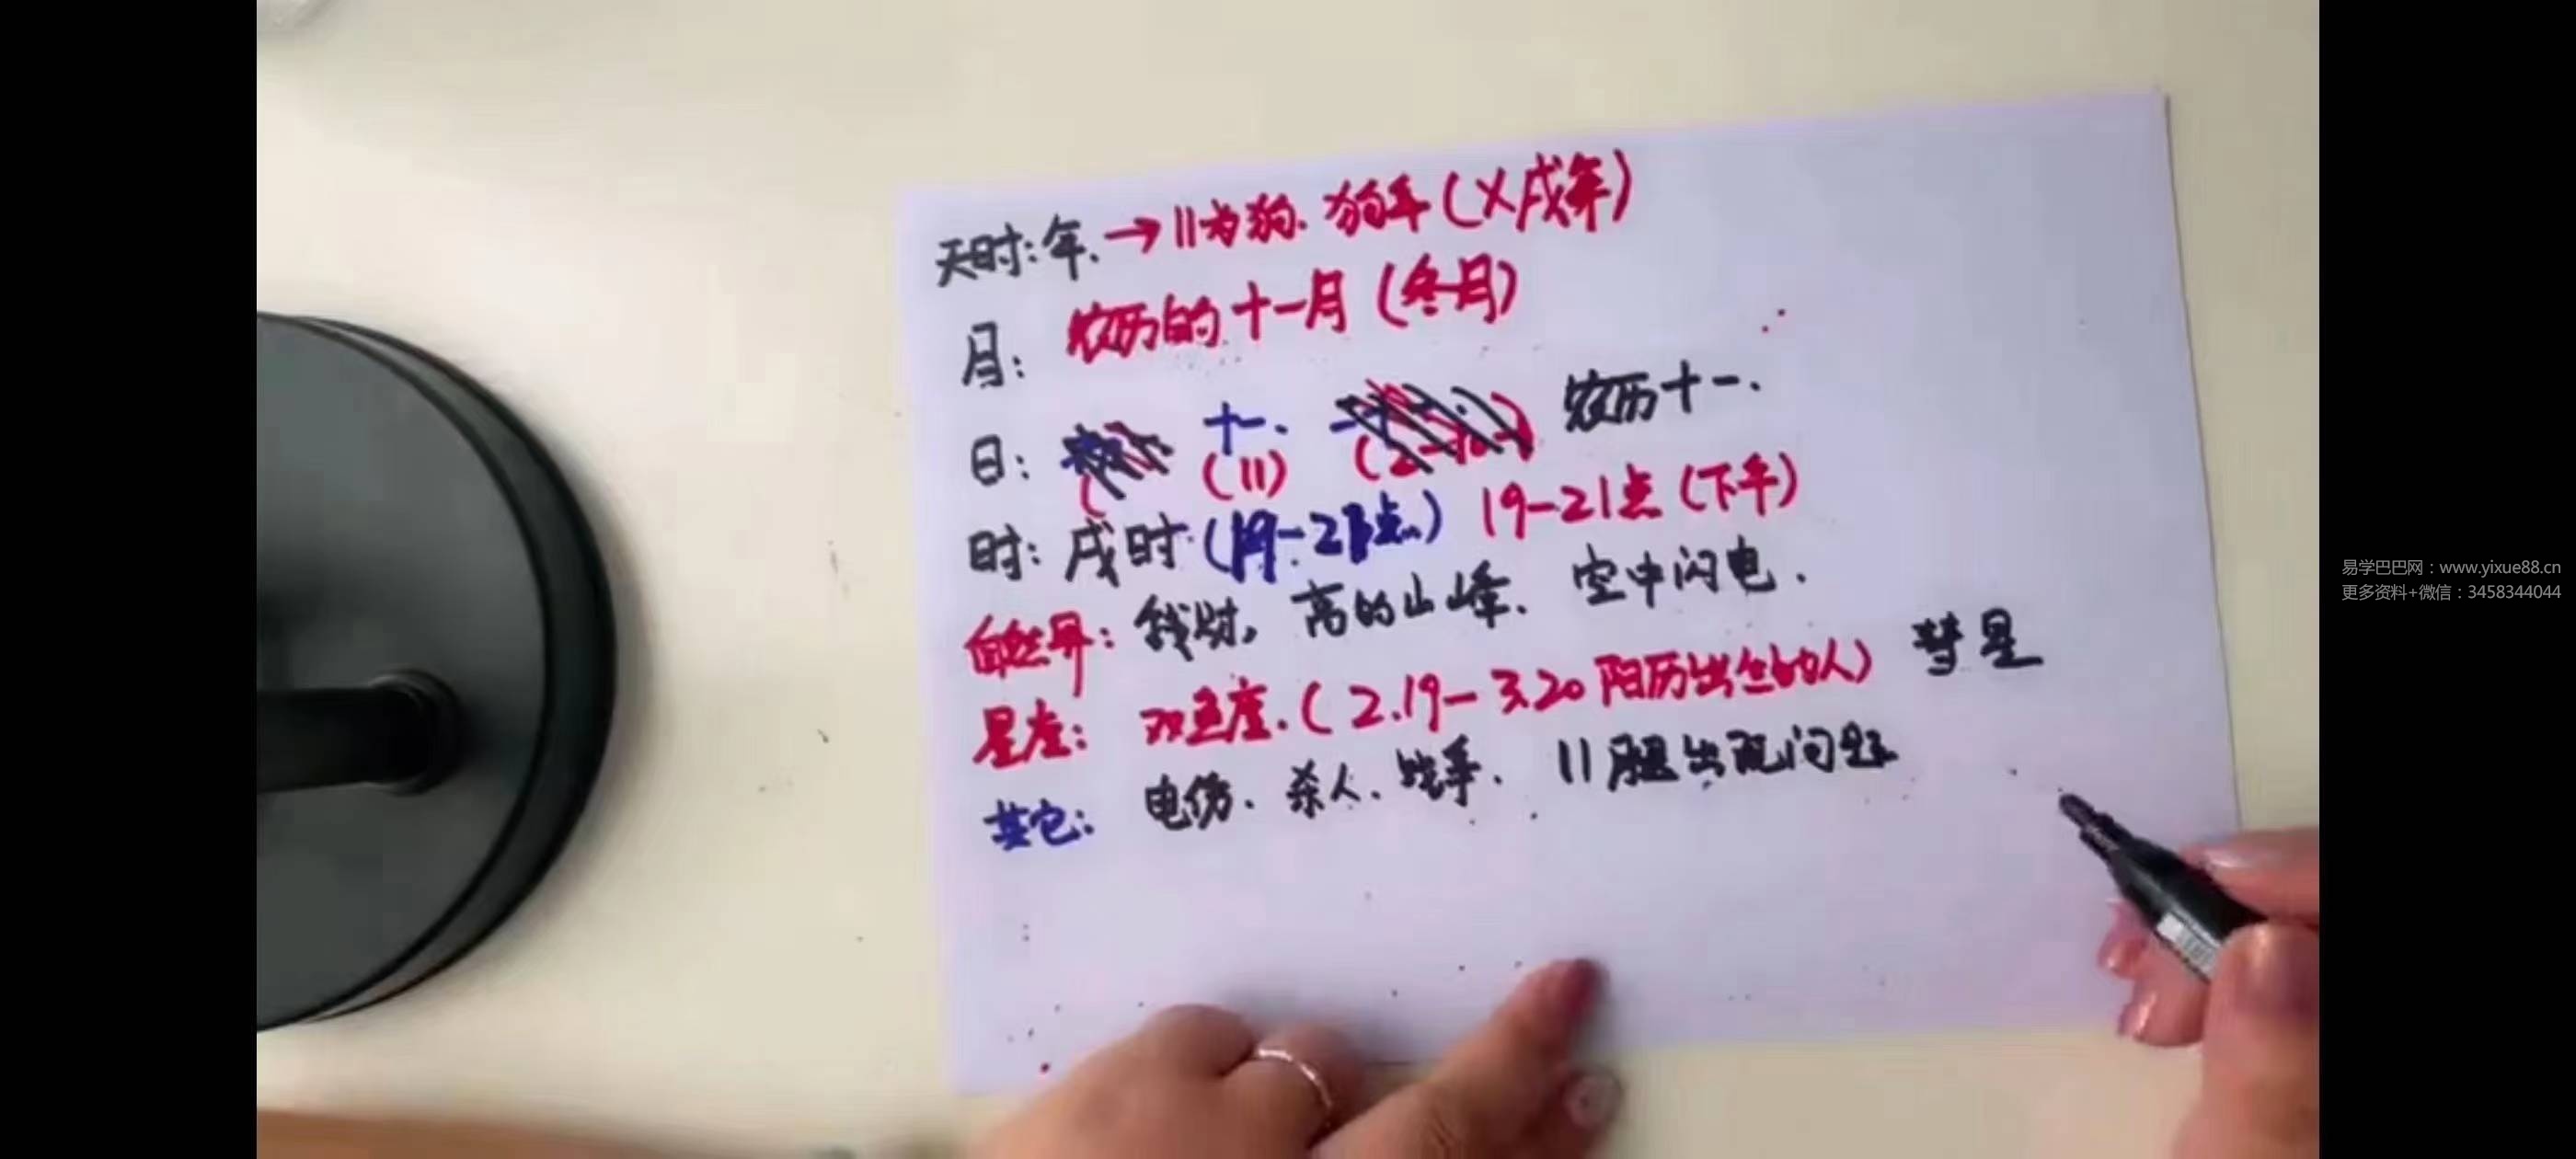 天时：年.→11为狗.狗年(乂戌年)
月：农历的十一月(冬月)
日：十一.(11) 农历十一.
时：戌时(19-21点) 19-21点(下午)
自然界：钱财，高的山峰、空中闪电.
星座：双鱼座.(2.19-3.20阳历出生的人) 彗星
其它：电伤.杀人.战争. 11腿出现问题
易学巴巴网：www.yixue88.cn
更多资料+微信：3458344044